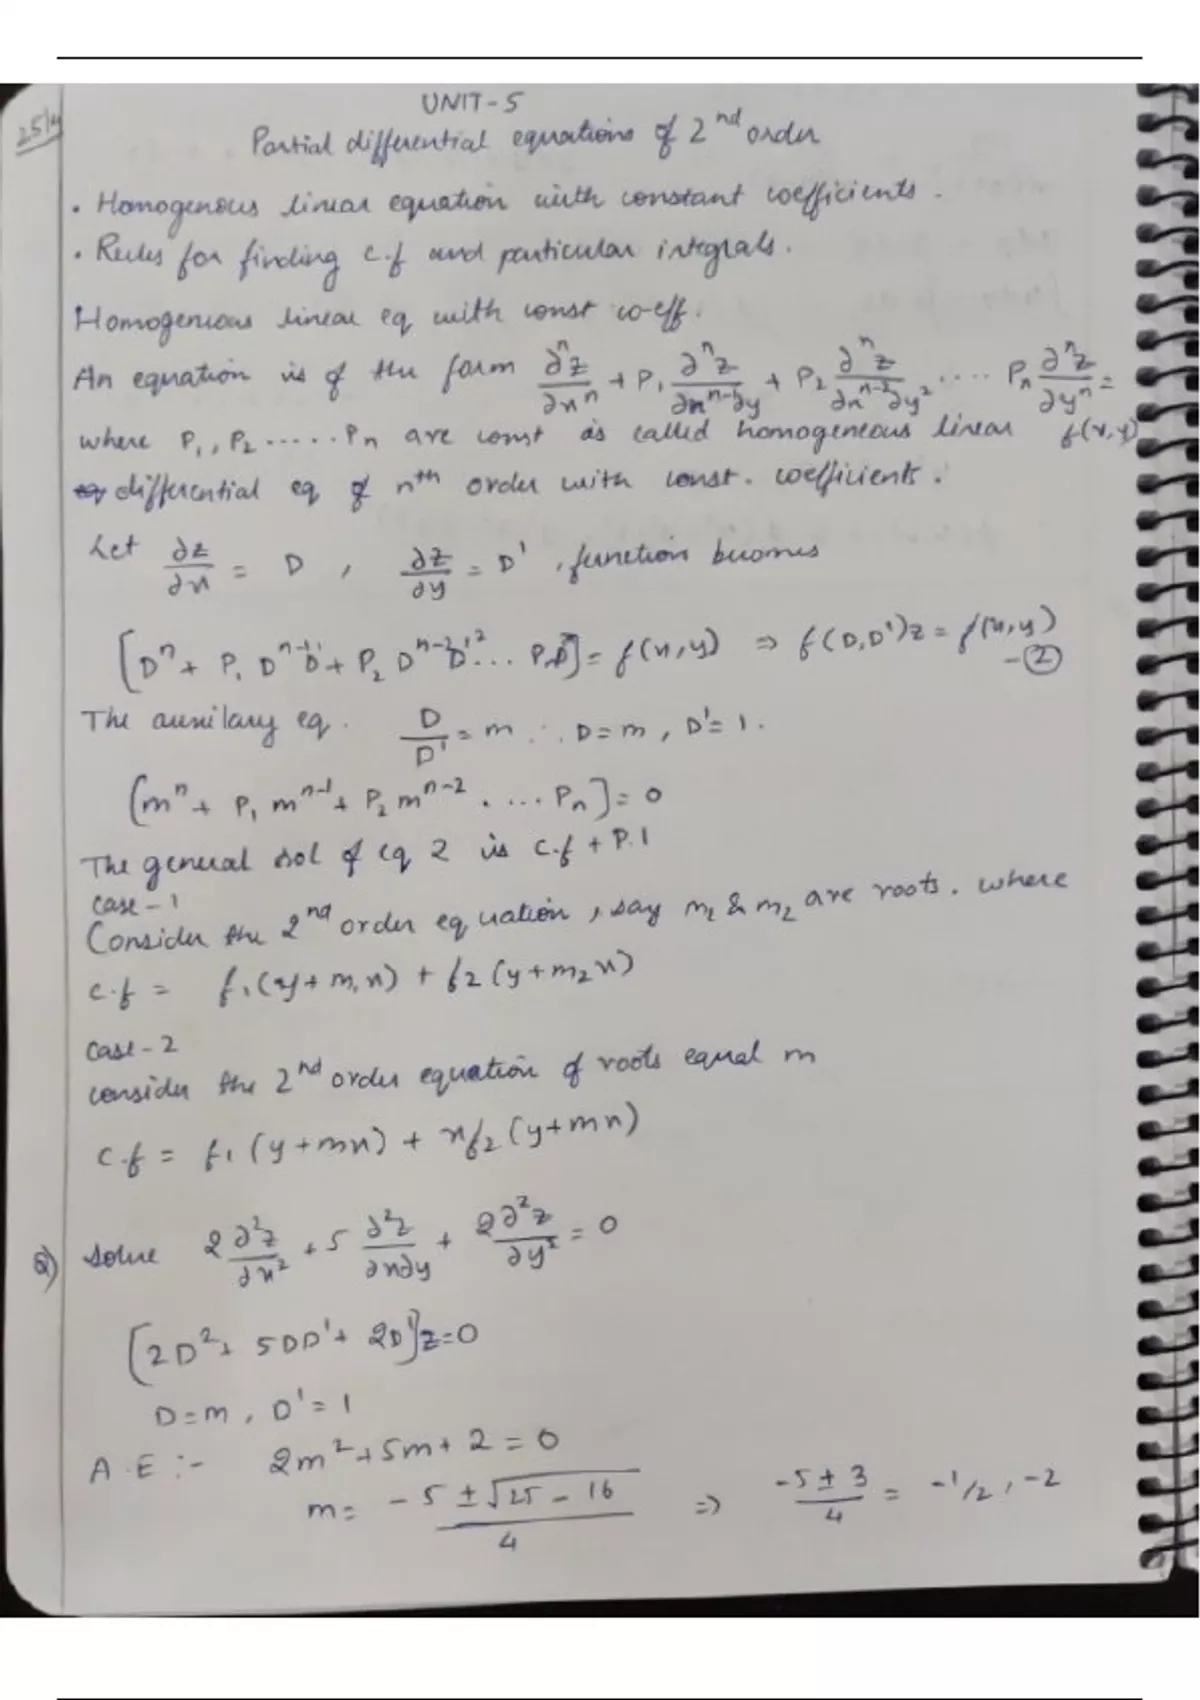 25/4
UNIT-5
Partial differential equations of 2nd order
• Homogenous linear equation with constant coefficients.
• Rules for finding c.f and particular integrals.
Homogenious linear eq with const co-eff.
An equation is of the form ∂ⁿz/∂xⁿ + P₁ ∂ⁿz/∂xⁿ⁻¹∂y + P₂ ∂ⁿz/∂xⁿ⁻²∂y² .... Pₙ ∂ⁿz/∂yⁿ = f(x,y)
where P₁, P₂ ...... Pₙ are const is called homogeneous linear
differential eq of nth order with const. coefficients.
Let ∂z/∂x = D , ∂z/∂y = D' , function becomes
[Dⁿ + P₁ Dⁿ⁻¹D' + P₂ Dⁿ⁻²D'² ... PₙD'ⁿ] = f(x,y) ⇒ f(D,D')z = f(x,y) -②
The auxilary eq. D/D' = m ∴ D=m , D'=1.
[mⁿ + P₁ mⁿ⁻¹ + P₂ mⁿ⁻² .... Pₙ] = 0
The general sol of eq 2 is c.f + P.I
case-1
Consider the 2nd order equation, say m₁ & m₂ are roots. where
c.f = f₁(y+m₁x) + f₂(y+m₂x)
case-2
consider the 2nd order equation of roots equal m
c.f = f₁(y+mx) + xf₂(y+mx)
Q) solve 2 ∂²z/∂x² + 5 ∂²z/∂x∂y + 2∂²z/∂y² = 0
[2D² + 5DD' + 2D']z=0
D=m , D'=1
A.E :- 2m²+5m+2=0
m= -5 ± √25-16 / 4 ⇒ -5±3/4 = -1/2 , -2